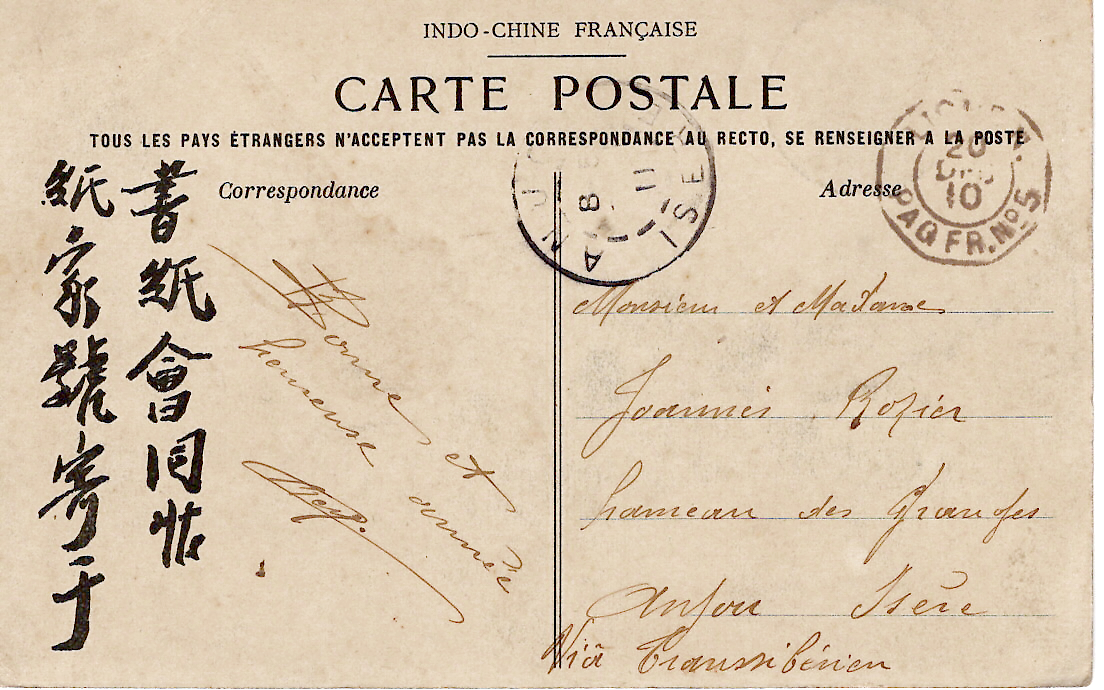 INDO-CHINE FRANÇAISE
CARTE POSTALE
TOUS LES PAYS ÉTRANGERS N'ACCEPTENT PAS LA CORRESPONDANCE AU RECTO, SE RENSEIGNER A LA POSTE
Correspondance
Adresse
書紙會同
紙家號寄于
Bonne et
heureuse année
ANJOU
8
11
ISERE
20
DEC
10
PAQ FR. Nº5
Monsieur et Madame
Joannès Rozier
hameau des Granges
Anjou Isère
Viâ Transsibérien